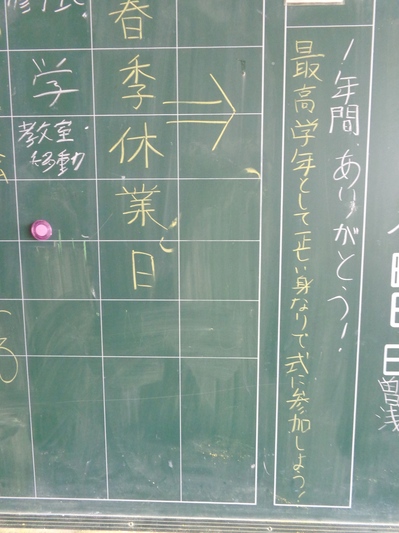 1年間、ありがとう!
最高学年として正しい身なりで式に参加しよう!
春季休業日
学
教室・
移動
日
曽
浅